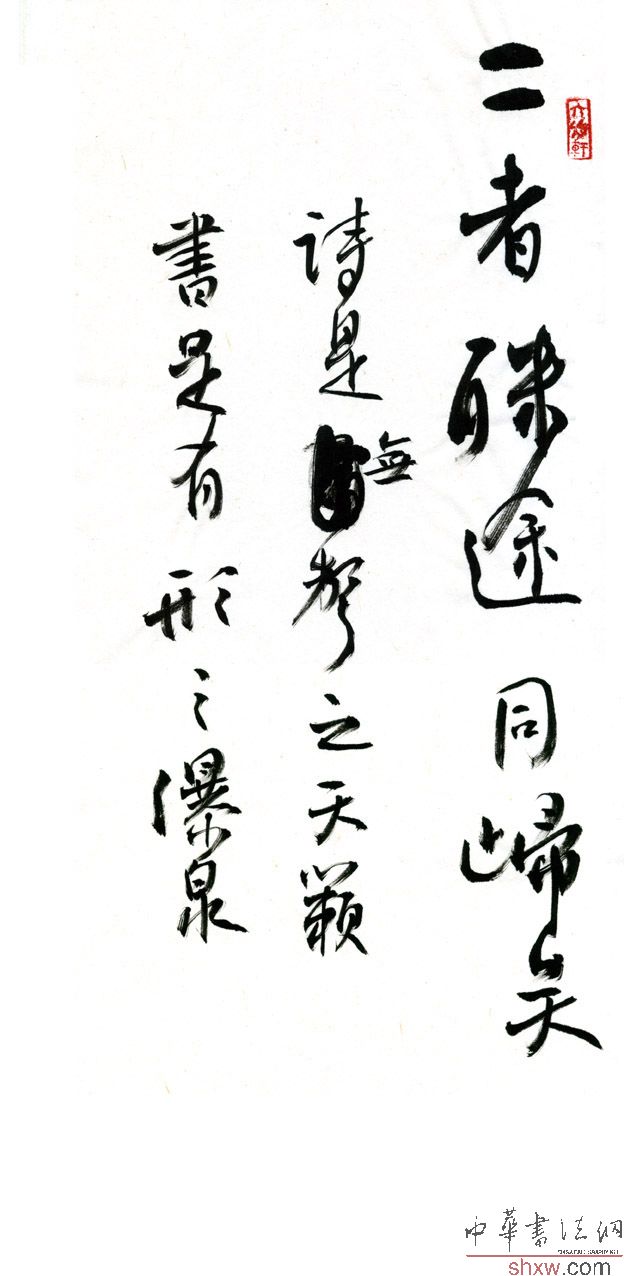 二者殊途同歸矣
詩是無聲之天籟
書是有形之瀑泉
中華書法網
shxw.com